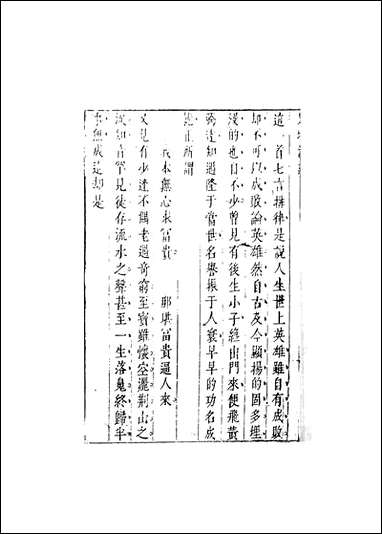 這一首七言排律是說人生世上英雄雖自有成敗
却不可以成敗論英雄然自古及今顯揚的固多埋
沒的也曰不少曾見有後生小子經出門來便飛黃
騰達知遇隆于當世名譽振于人寰早早的功名成
就正所謂
我本無心求冨貴 那堪冨貴逼人來
又見有少達不偶老過奇窮至寳雖懷空灑荆山之
淚知音罕見徒存流水之聲甚至一生落鬼終歸半
事無成這却是